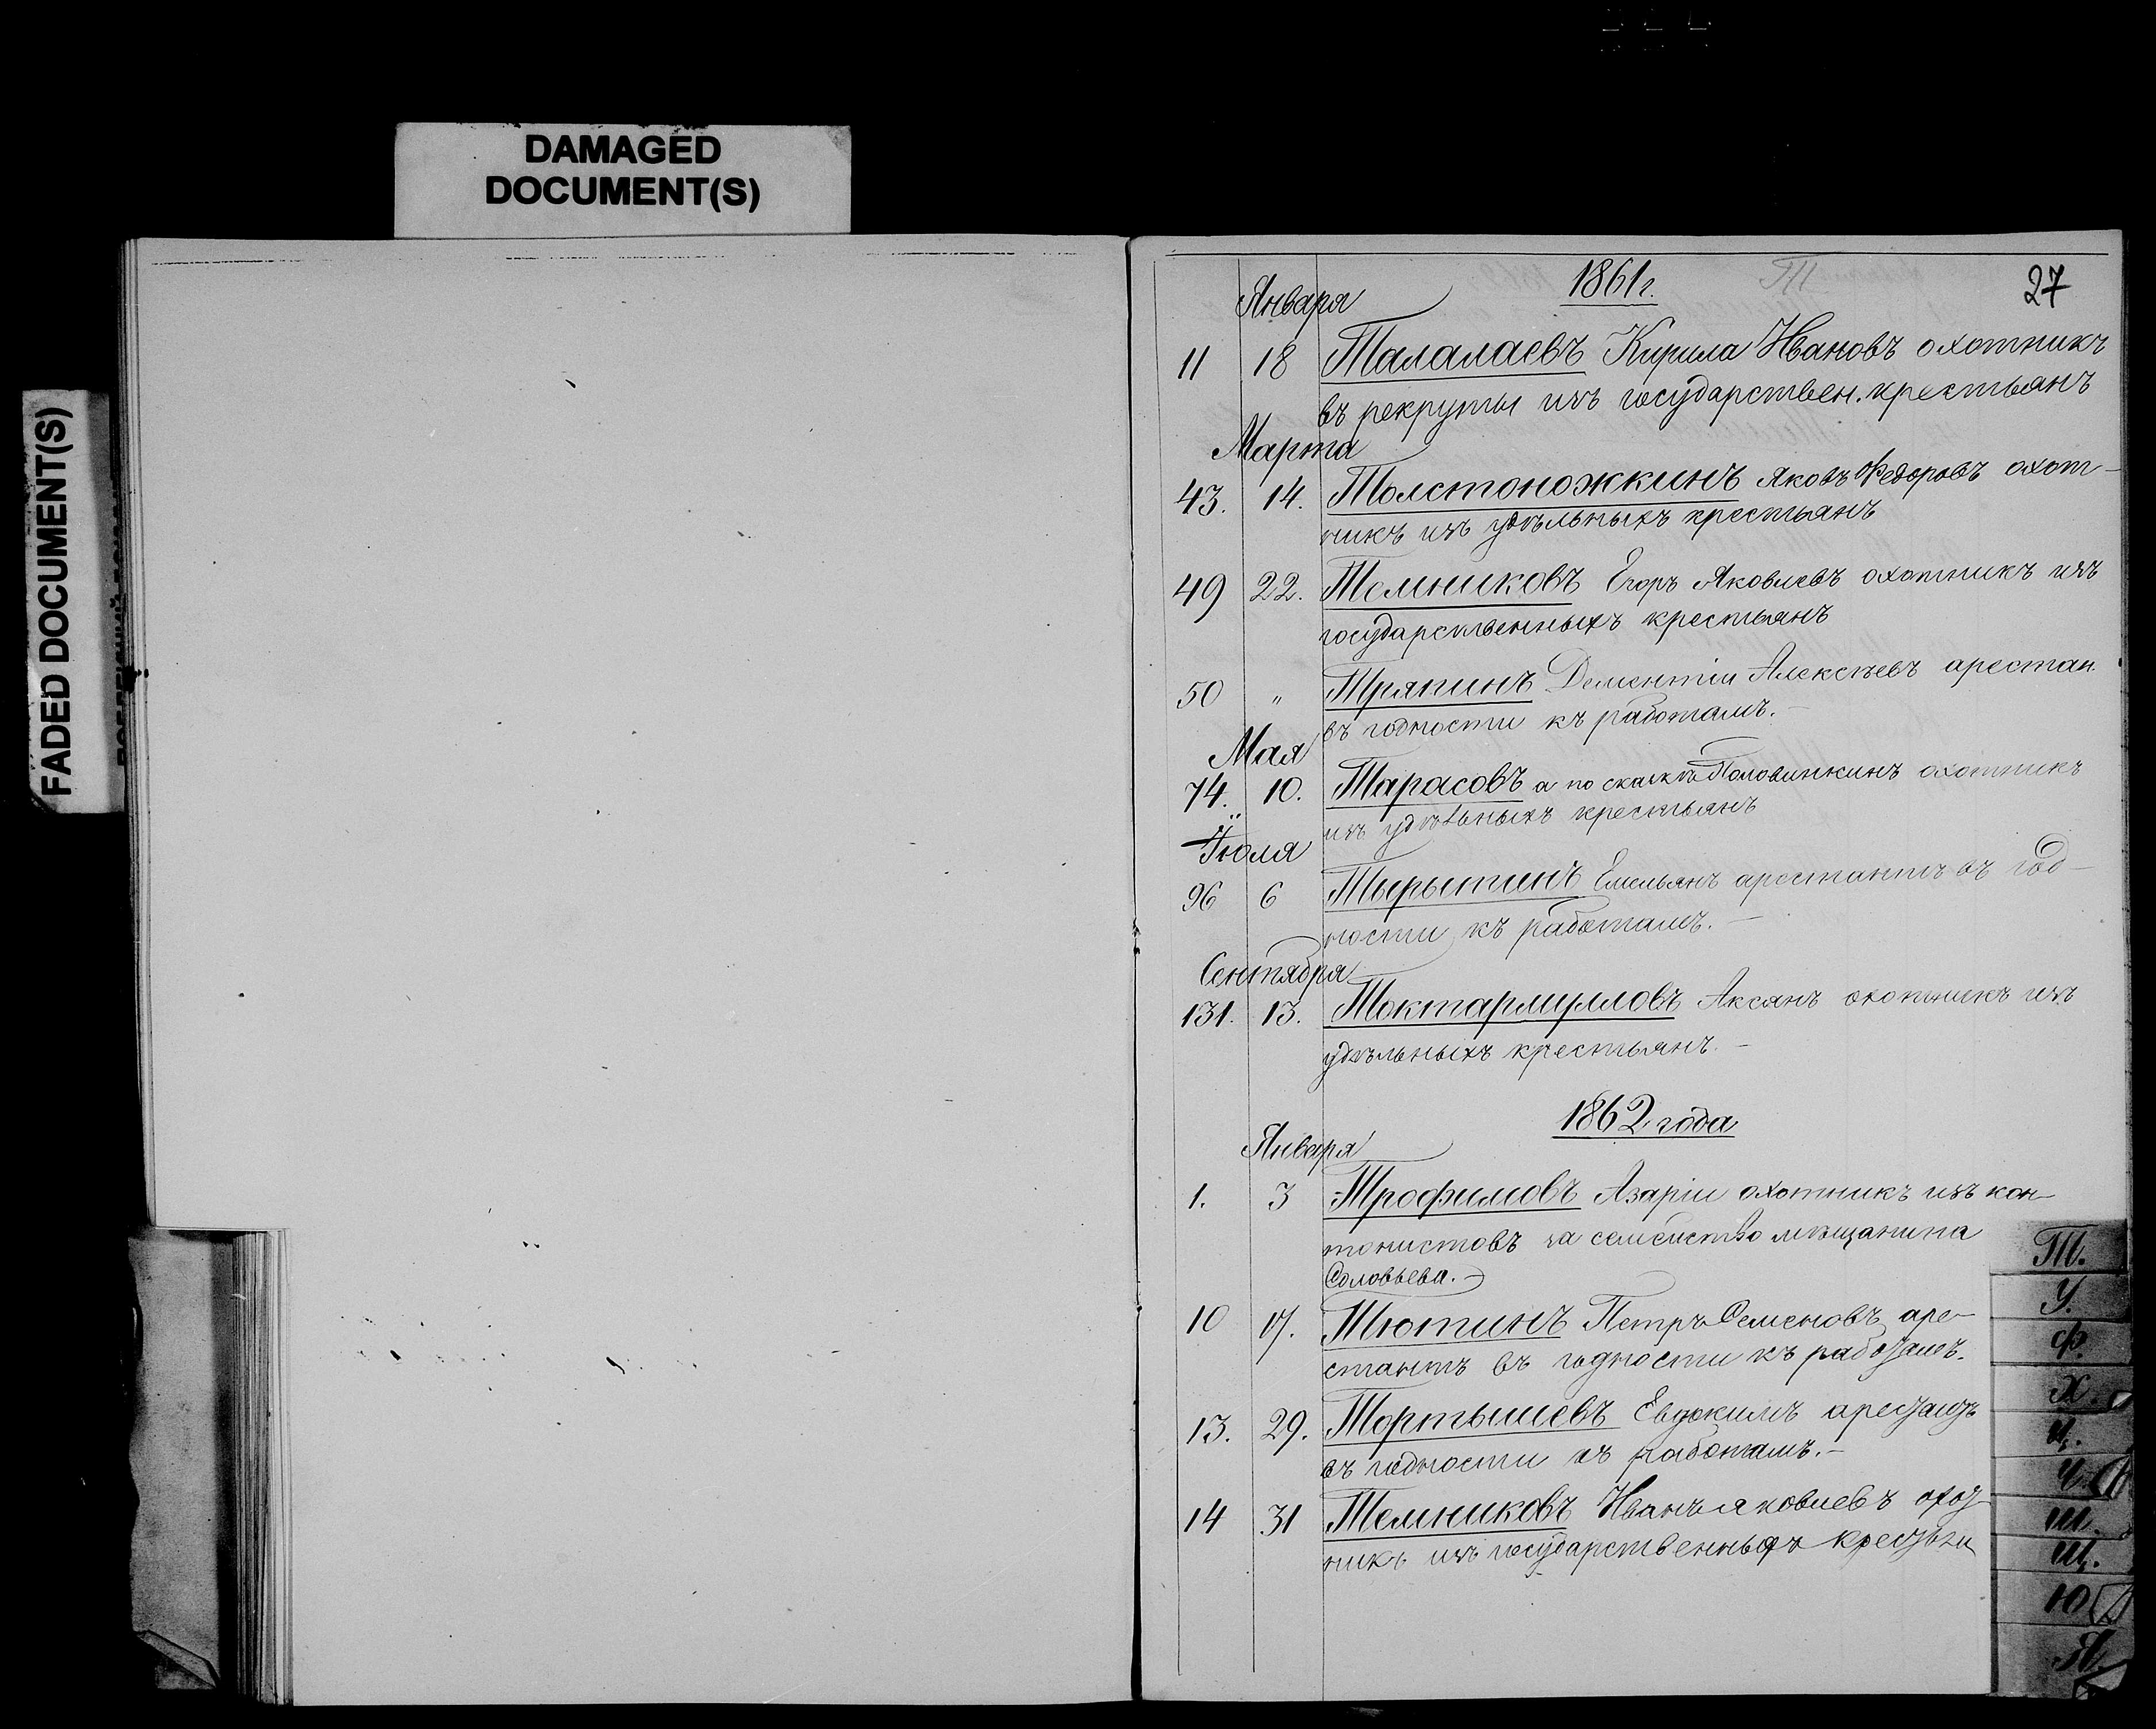 DAMAGED
DOCUMENT(S)
FADED DOCUMENT(S)
1861г. Т 27
Января
11 18 Талалаевъ Кирила Ивановъ охотникъ
въ рекруты изъ государствен. крестьянъ
Марта
43. 14. Толстоножкинъ Яковъ Федоровъ охот-
никъ изъ удѣльныхъ крестьянъ
49 22. Темниковъ Егоръ Яковлевъ охотникъ изъ
государственныхъ крестьянъ
50 " Тряпинъ Дементіи Алексѣевъ арестан.
въ годности къ работамъ.-
Мая
74. 10. Тарасовъ а по сказкѣ Половинкинъ охотникъ
изъ удѣльныхъ крестьянъ
Іюля
96 6 Тырытинъ Емельянъ арестантъ въ год-
ности къ работамъ.-
Сентября
131. 13. Аксянъ охотникъ изъ
удѣльныхъ крестьянъ.-
1862 года
Января
1. 3 Трофимовъ Азаріи охотникъ изъ кан-
тонистовъ за семеиство мѣщанина
Соловьева.-
10 17. Тютинъ Петръ Семеновъ аре-
стантъ въ годности къ работамъ.
13. 29. Тортышевъ Евдокимъ арестантъ
въ годности къ работамъ.-
14 31 Темниковъ Иванъ Яковлевъ охот-
никъ изъ государственныхъ крестьян
Т.
У.
Ф.
Х.
Ц.
Ч.
Ш.
Щ.
Ю
Я.